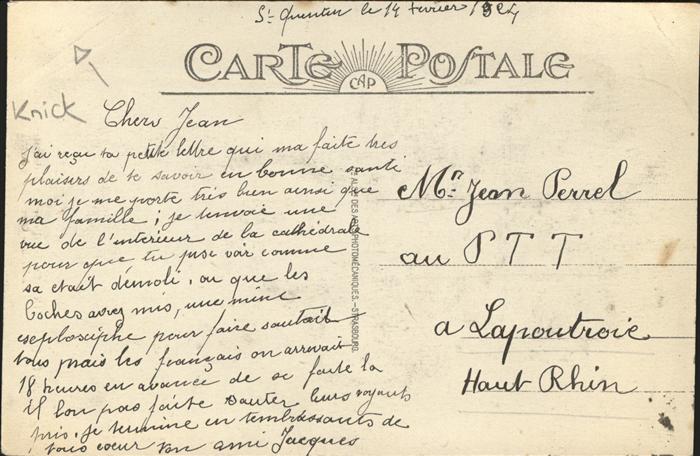 St Quentin le 14 Fevrier 1924
CARTE POSTALE
CAP
Knick
Chers Jean
j'ai reçu ta petite lettre qui ma faite tres
plaisers de te savoir en bonne santé
moi je me porte très bien ainsi que
ma famille ; je tenvoie une
vue de l'interieur de la cathédrale
pour que tu puse voir comme
sa etait démoli, ou que les
boches avez mis, une mine
pour faire sautait
tous mais les français on arrivait
18 heures en avance de se faite la
il lon pas faite sauter leurs voyants
pris. je termine en tembrassants de
tous coeur ton ami Jacques
PHOTOMÉCANIQUES.-STRASBOURG
Mr. Jean Perrel
au P T T
a Lapoutroie
Haut Rhin